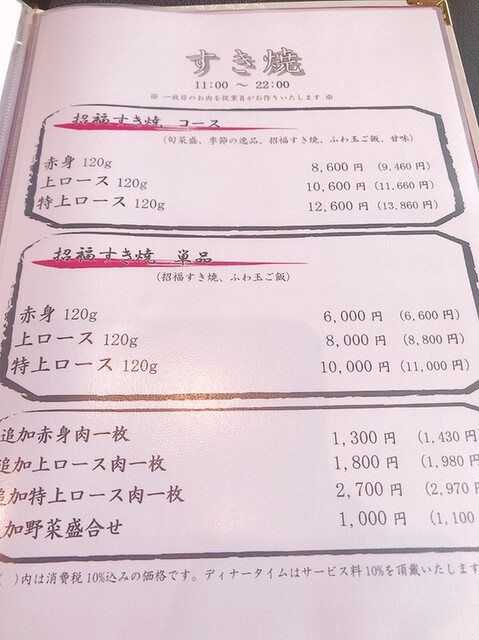 すき焼
11:00 ～ 22:00
※ 一枚目のお肉を従業員がお作りいたします ※
招福すき焼 コース
(旬菜盛、季節の逸品、招福すき焼、ふわ玉ご飯、甘味)
赤身 120g 8,600 円 (9,460 円)
上ロース 120g 10,600 円 (11,660 円)
特上ロース 120g 12,600 円 (13,860 円)
招福すき焼 単品
(招福すき焼、ふわ玉ご飯)
赤身 120g 6,000 円 (6,600 円)
上ロース 120g 8,000 円 (8,800 円)
特上ロース 120g 10,000 円 (11,000 円)
追加赤身肉一枚 1,300 円 (1,430 円)
追加上ロース肉一枚 1,800 円 (1,980 円
追加特上ロース肉一枚 2,700 円 (2,970 円
加野菜盛合せ 1,000 円 (1,100
)内は消費税10%込みの価格です。ディナータイムはサービス料10%を頂戴いたします